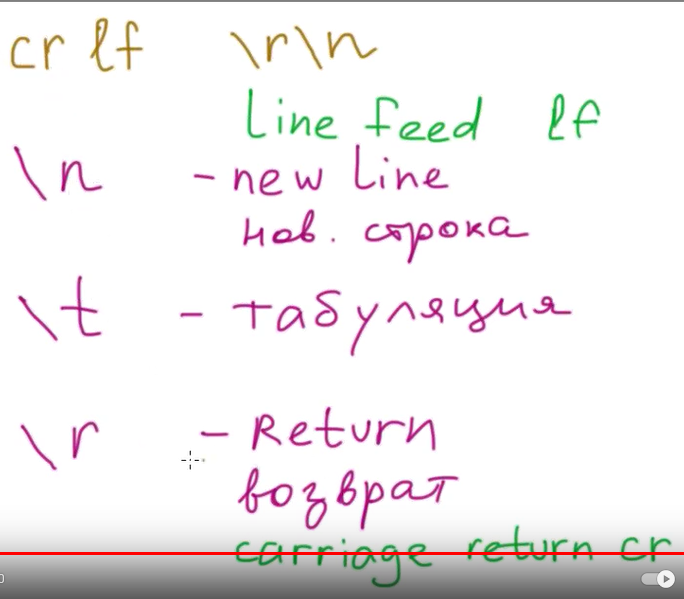 cr lf \r\n
Line feed lf
\n - new Line
нов. строка
\t - табуляция
\r - Return
возврат
carriage return cr